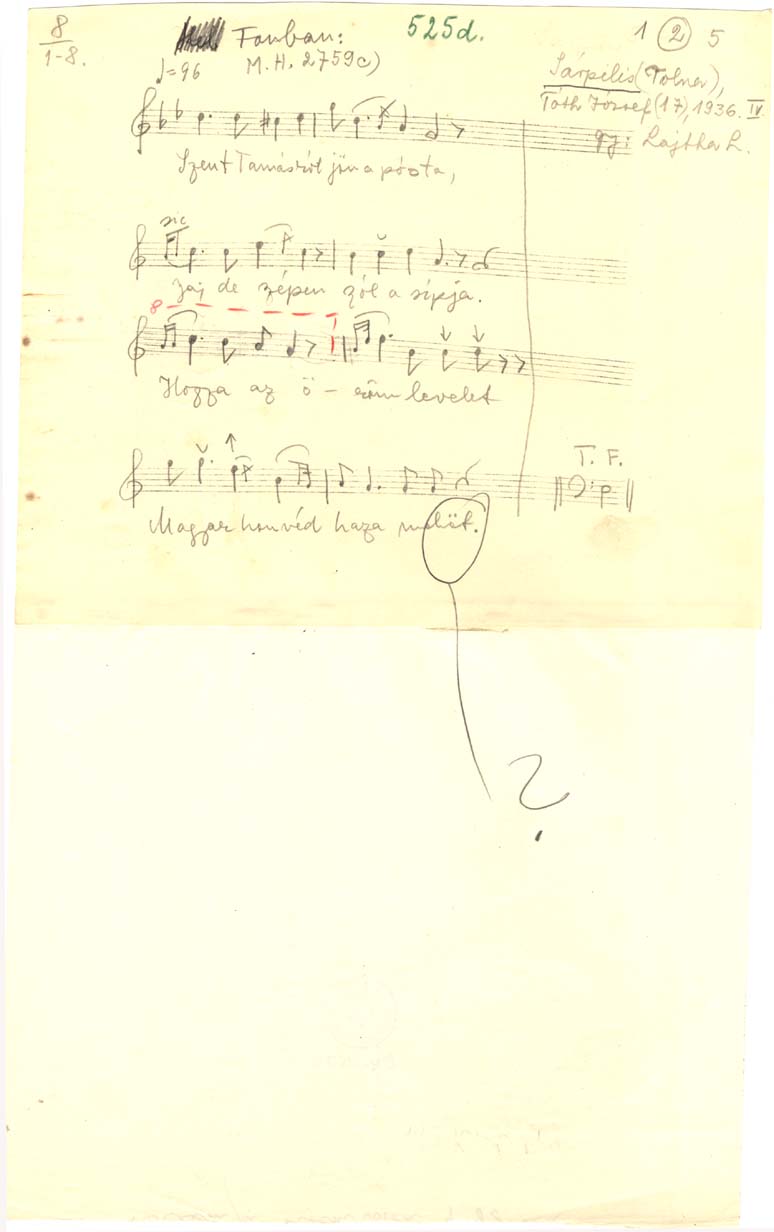 8/1-8.
Fonban: 525d. 1 2 5
♩=96 M.H. 2759c)
Sárpilis (Tolna),
Tóth József (17), 1936. IV.
gy: Lajtha L.
Szent Tamásról jön a pósta,
sic
Zaj de szépen szól a sípja.
8
Hozza az ö-röm levelet
T. F.
Magyar honvéd haza
?